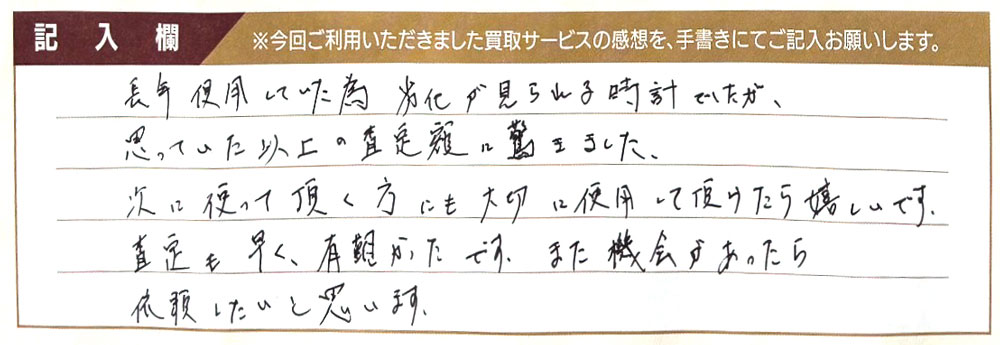 記入欄
※今回ご利用いただきました買取サービスの感想を、手書きにてご記入お願いします。
長年使用していた為 劣化が見られる時計でしたが、
思っていた以上の査定額に驚きました。
次に使って頂く方にも大切に使用して頂けたら嬉しいです。
査定も早く、有難かったです。また機会があったら
依頼したいと思います。